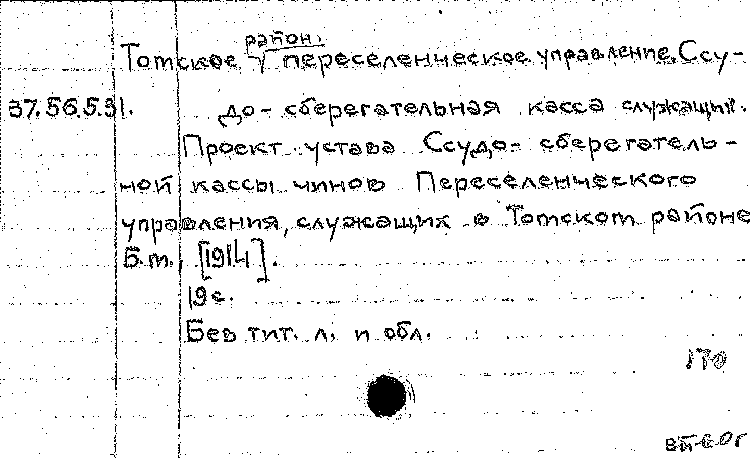 район.
Томское переселенческое управление. Ссу-
37.56.5.31. до-сберегательная касса служащих.
Проект устава Ссудо-сберегатель-
ной кассы чинов Переселенческого
управления, служащих в Томском районе
Б.т., [1914].
19с.
Без тит. л. и обл.
170